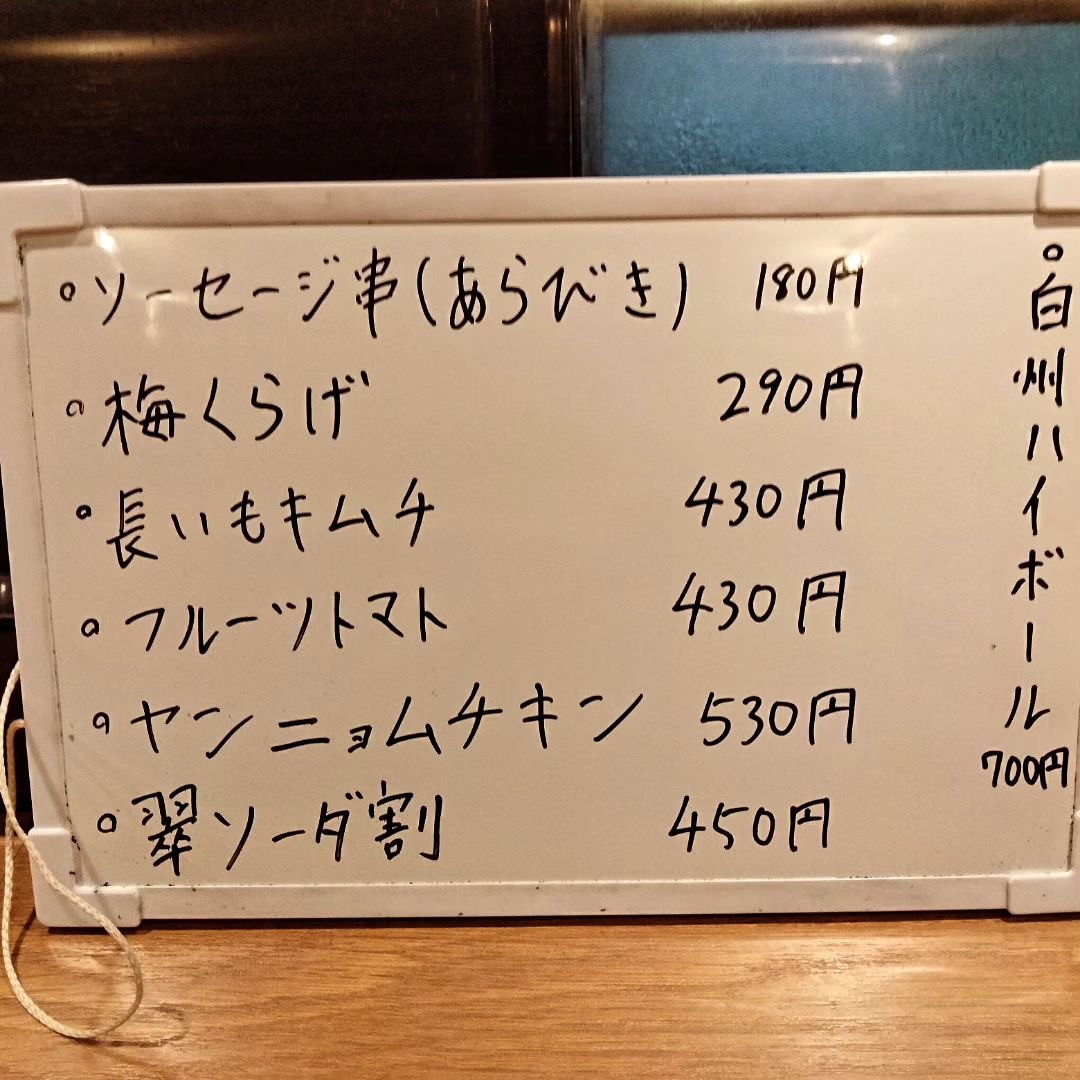 ソーセージ串(あらびき) 180円
梅くらげ 290円
長いもキムチ 430円
フルーツトマト 430円
ヤンニョムチキン 530円
翠ソーダ割 450円
白州ハイボール
700円